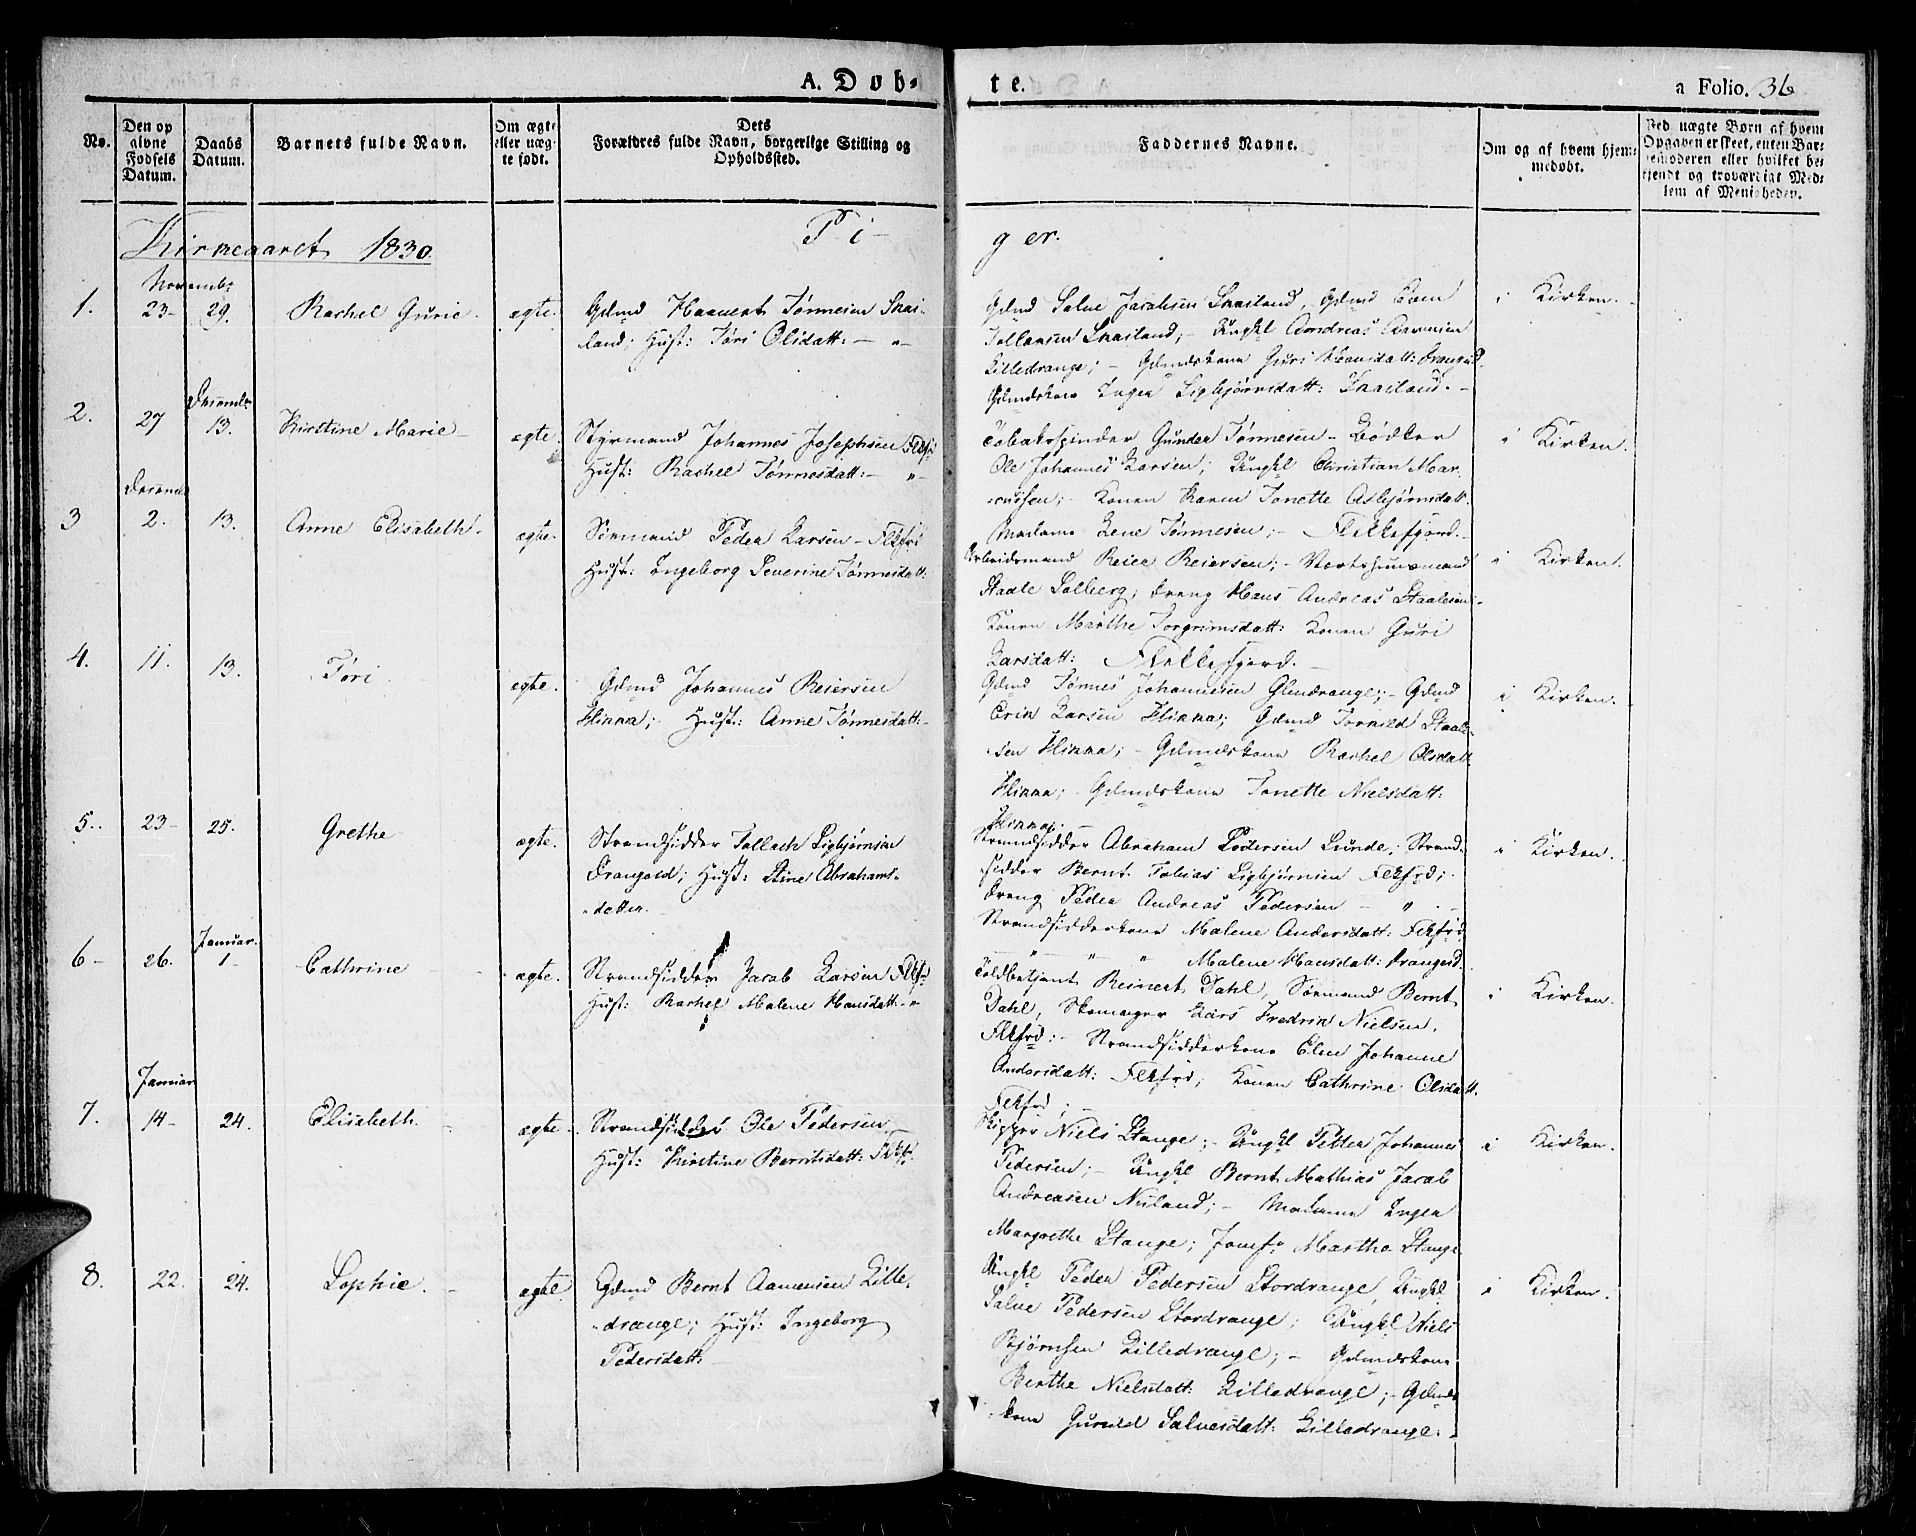 A. Døb-
te.
a Folio. 36
No.
Den op
givne
Fødsels
Datum.
Daabs
Datum.
Barnets fulde Navn.
Om ægte
eller uæg-
te født.
Dets
Forældres fulde Navn, borgerlige Stilling og
Opholdssted.
Faddernes Navne.
Om og af hvem hjem-
medøbt.
Ved uægte Børn af hvem
Opgaven er skeet, enten Bar-
nemoderen eller hvilket be-
kjendt og troværdigt Med-
lem af Menigheden.
Kirkeaaret 1830.
Pi-
ger.
Novembr
1. 23- 29. Rachel Gurie. ægte.
Gdmd Haavert Tønnesen Skai-
land; Hust: Tøri Olsdatt: — " -
Gdmd Salve Jacobsen Skailand, Gdmd
Tollaksen Skailand; - Ungkl Andreas Aamensen
Lilledrange; - Gdmdskone Guri Hansdatt: Drangeid.
Gdmdskone Inger Sigbjørnsdatt: Skailand. -
i Kirken.
Decembr
2. 27 13. Kirstine Marie - ægte.
Styrmand Johannes Josephsen Flkfj
Hust: Rachel Tønnesdatt: - " -
Tobakspinder Gunder Tønnesen - Bødker
Ole Johannes Larsen; Ungkl Christian Mar-
cussen; - Konen Karen Tonette Asbjørnsdatt.
Madame Lene Tønnesen; - Flekkefjord. -
i Kirken.
Decembr
3 2. 13. Anne Elisabeth. ægte-
Sømand Peder Larsen - Flkfjd
Hust: Ingeborg Severine Tønnesdatt:
Arbeidsmand Reier Reiersen; - Vertshuusmand
Staale Solberg; Dreng Hans Andreas Staalesen -
Konen Marthe Torgrimsdatt: Konen Guri
Larsdatt: Flekkefjord. -
i Kirken.
4. 11. 13. Tøri ægte.
Gdmd Johannes Reiersen
Hlinna; - Hust: Anne Tønnesdatt: -
Gdmd Tønnes Johannesen Glendrange; - Gdmd
Erik Larsen Hlinna; Gdmd Torkild Staale-
sen Hlinna; - Gdmdskone Rachel Olsdatt.
Hlinna; - Gdmdskone Tonette Nielsdatt:
Hlinna; -
i Kirken.
5. 23- 25. Grethe ægte.
Strandsidder Tollach Sigbjørnsen
Drangeid; Hust: Stine Abrahams-
datter.
Strandsidder Abraham Pedersen Lunde; Strand-
sidder Bernt Tobias Sigbjørnsen Flkfjd;
Dreng Peder Andreas Pedersen - " -
Strandsidderkone Malene Andersdatt: Flkfjd
- " - " " Malene Hansdatt: Drangeid.
i Kirken.
Januar.
6- 26. 1- Cathrine ægte.
Strandsidder Jacob Larsen Flkfjd
Hust: Rachel Malene Hansdatt - "
Toldbetjent Reinert Dahl, Sømand Bernt
Dahl, Skomager Lars Fredrik Nielsen,
Flkfjd: - Strandsidderkone Elen Johanne
Andersdatt: Flkfjd; Konen Cathrine Olsdatt.
Flkfjd;
i Kirken.
Januar
7. 14- 24. Elisabeth. ægte.
Strandsidder Ole Pedersen
Hust: Kirstine Berntsdatt: Flkfj
Skipper Niels Stange; - Ungkl Petter Johannes
Pedersen; - Ungkl Bernt Mathias Jacob
Andreasen Nuland; - Madame Inger
Margrethe Stange; Jomfr Marthe Stange
i Kirken.
8. 22. 24. Sophie. ægte.
Gdmd Bernt Aamensen Lille-
drange; Hust: Ingeborg
Pedersdatt:
Ungkl Peder Pedersen Stordrange, Ungkl
Salve Pedersen Stordrange; Ungkl Niels
Bjørnsen Lilledrange; - Gdmdskone
Berthe Nielsdatt: Lilledrange; - Gdmds-
kone Gunild Salvesdatt: Lilledrange. -
i Kirken.